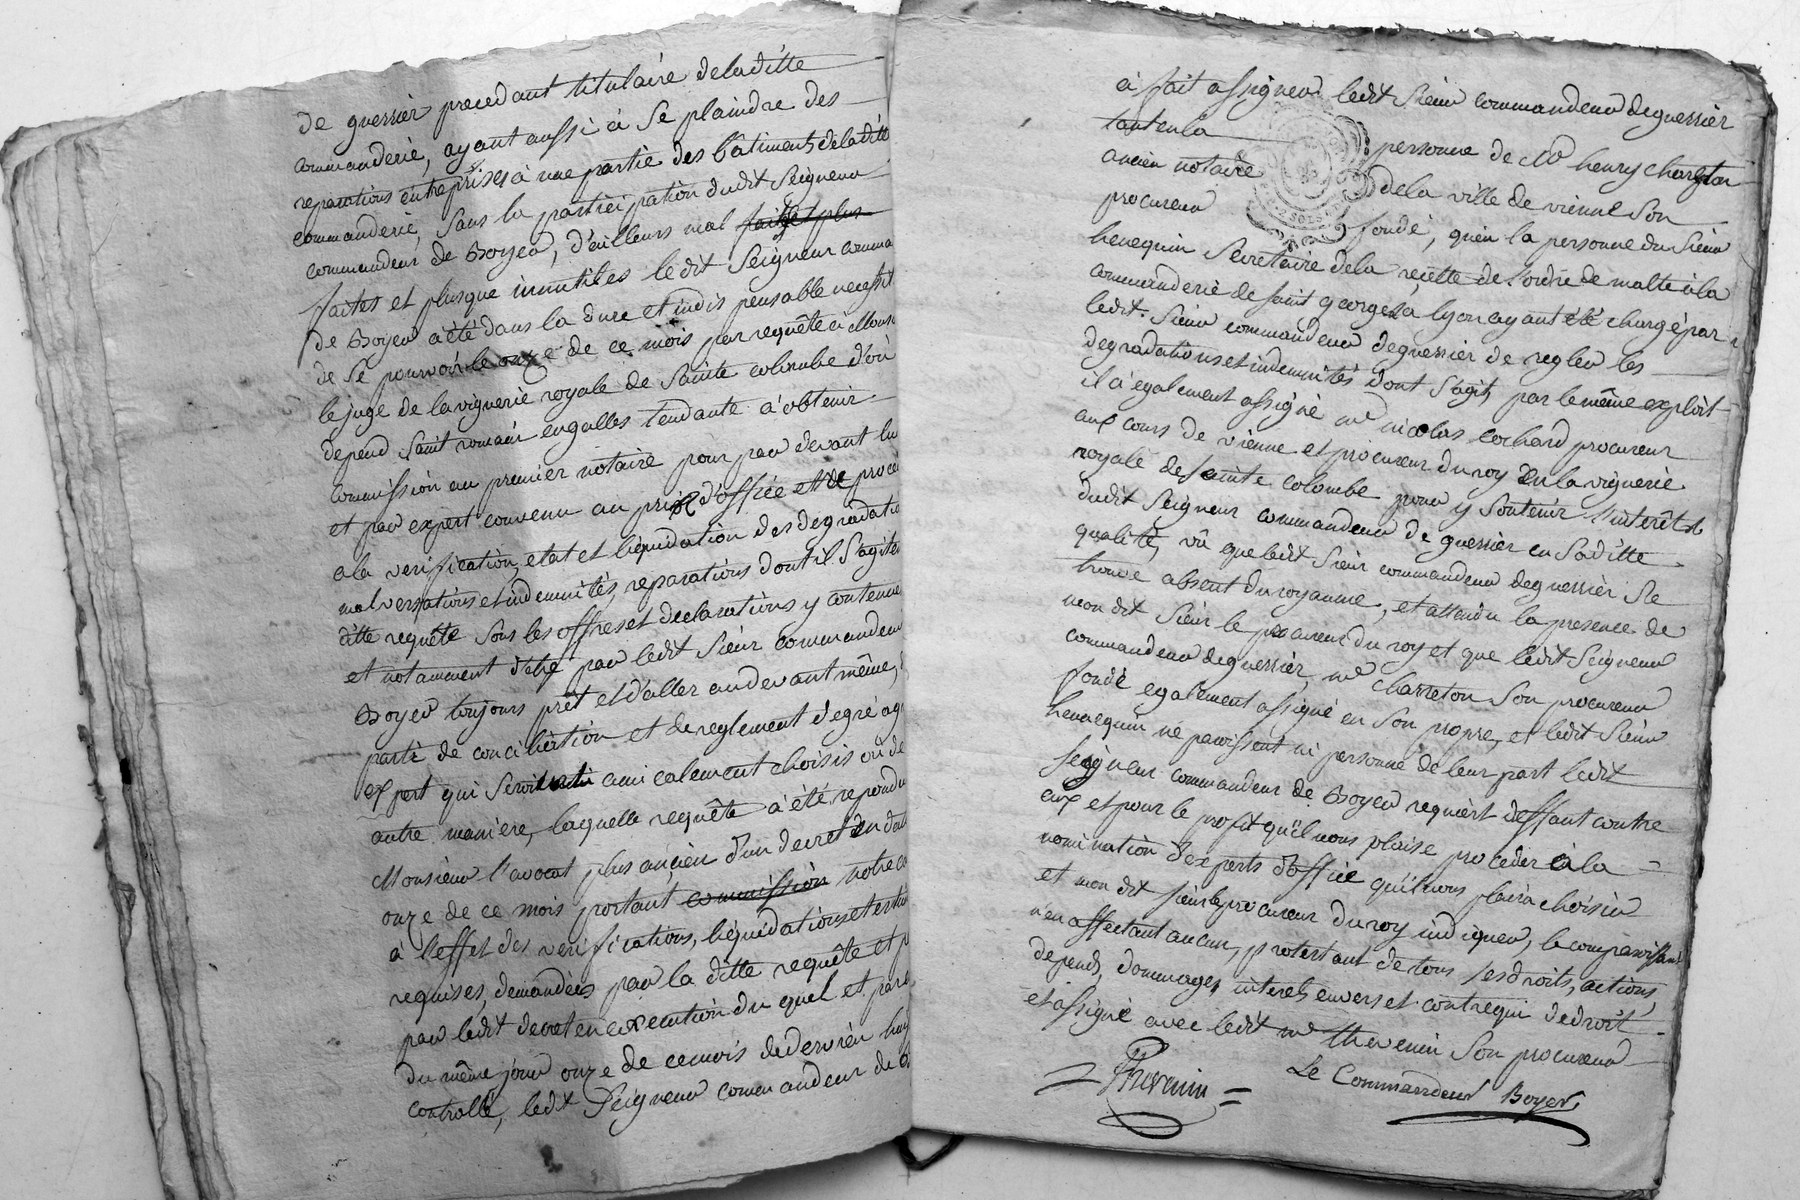 de guerrier precedant titulaire deladitte
commanderie, ayant aussi à se plaindre des
reparations entreprises à une partie des bâtiments deladitte
commanderie, sans la participation dudit Seigneur
commandeur de Boyer, d'ailleurs mal faites plus
faites et plusque innutiles ledit Seigneur comma
de Boyer a été dans la dure et indispensable necessit
de se pourvoir le onze de ce mois par requête à Mons
le juge de la viguerie royale de Sainte colombe d'où
depend Saint romain engalles tendante à obtenir
commission au premier notaire pour par devant lui
et par expert convenu au pris d'office et de proce
a la verification, etat et liquidation des degradatio
malversations et indemnités, reparations dont il S'agit
ditte requête sous les offres et declarations y contenue
et notamment d'etre par ledit Sieur commandeur
Boyer toujours prêt et d'aller audevant même,
partie de conciliation et de reglement degré agr
expert qui seroit amicalement choisis ou de
autre maniere, laquelle requête a été repondu
Monsieur l'avocat plus ancien d'un decret en date
onze de ce mois portant commission notre co
à l'effet des verifications, liquidations et
requises, demandées par la ditte requête et p
par ledit decret en execution du quel et par
du même jour onze de cemois
controllé, ledit Seigneur commandeur de B
à fait assigner ledit Sieur commandeur deguerrier
tant en la personne de Mr henry charreton
ancien notaire de la ville de vienne Son
procureur fondé, qu'en la personne du Sieur
henequin Secretaire dela recette de l'ordre de malte à la
commanderie de saint george à lyon ayant été chargé par
ledit Sieur commandeur deguerrier de regler les
degradations et indemnités dont s'agit, par le même exploit
il a également assigné me nicolas cochard procureur
aux cours de vienne et procureur du roy en la viguerie
royale de Sainte colombe pour y soutenir l'interêt
dudit Seigneur commandeur de guerrier en Saditte
qualité, vû que ledit Sieur commandeur deguerrier se
trouve absent du royaume, et attendu la presence de
mon dit Sieur le procureur du roy et que ledit Seigneur
commandeur deguerrier, me charreton Son procureur
fondé egalement assigné en Son propre, et ledit Sieur
hennequin ne paroissent ni personne de leur part ledit
Seigneur commandeur de Boyer requiert deffaut contre
eux et pour le profit qu'il nous plaise proceder à la
nomination d'experts d'office qu'il nous plaira choisir
et mon dit sieur le procureur du roy indiquer, le comparoissant
n'en affectant aucun, protestant de tous ses droits, actions,
depends, dommages, interets envers et contre qui de droit
et assigné avec ledit me thevenin Son procureur
Thevenin
Le Commandeur Boyer